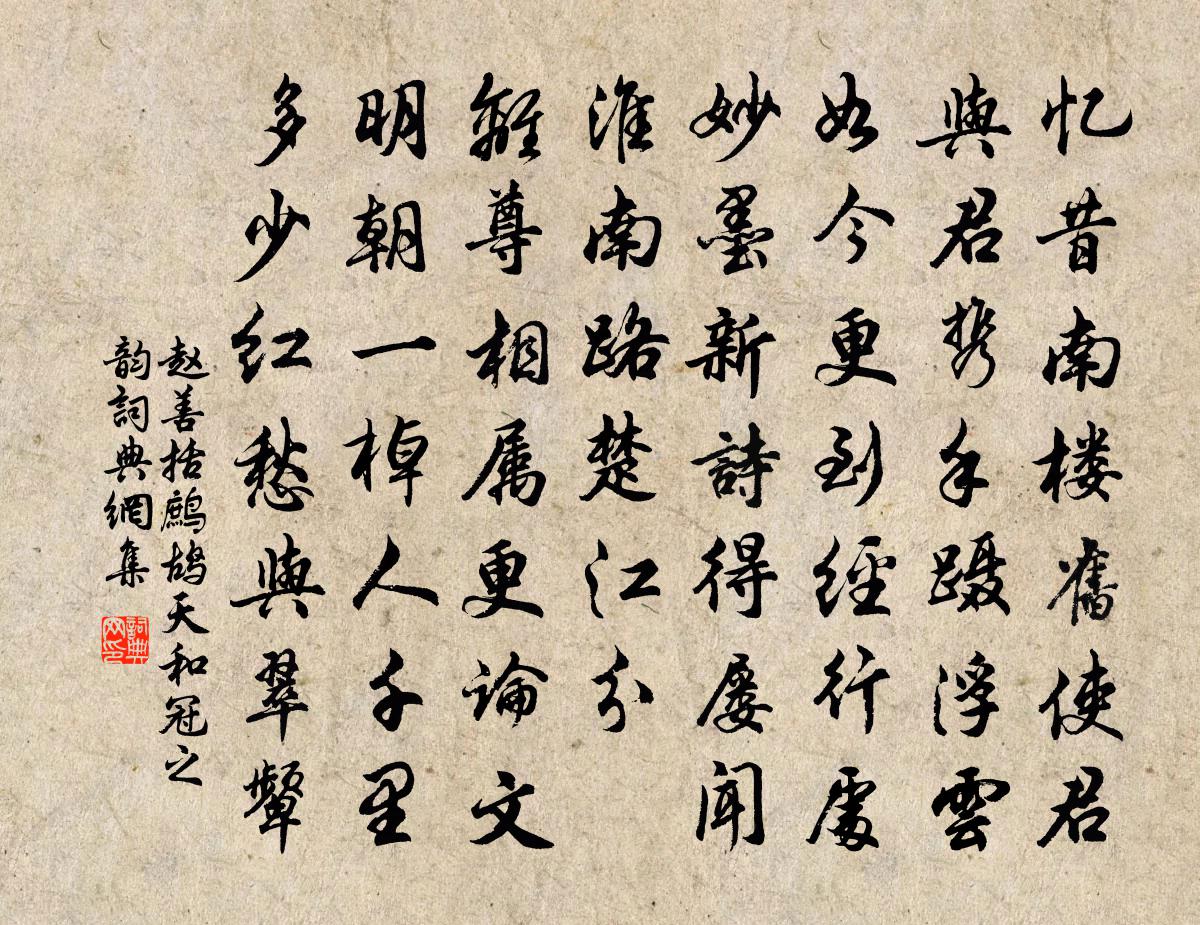 忆昔南楼旧使君
與君携手蹑浮雲
如今更到經行處
妙墨新詩得屡聞
淮南路楚江分
離尊相属更論文
明朝一棹人千里
多少红愁與翠颦
赵善括鹧鸪天和冠之
韵詞典網集
詞典网印